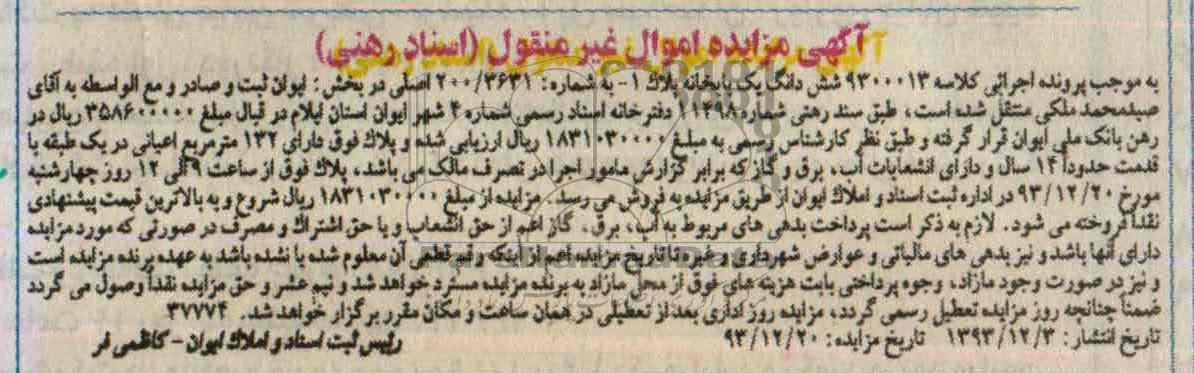 آگهی مزایده اموال غیر منقول (اسناد رهنی)
به موجب پرونده اجرائی کلاسه ۹۳۰۰۰۱۳ شش دانگ یک بابخانه پلاک ۱- به شماره: ۲۰۰/۳۶۳۱ اصلی در بخش: ایوان ثبت و صادر و مع الواسطه به آقای
صیدمحمد ملکی منتقل شده است، طبق سند رهنی شماره ۱۱۴۹۸ دفترخانه اسناد رسمی شماره ۴ شهر ایوان استان ایلام در قبال مبلغ ۳۵۸۶۰۰۰۰۰ ریال در
رهن بانک ملی ایوان قرار گرفته و طبق نظر کارشناس رسمی به مبلغ ۱۸۳۱۰۳۰۰۰۰ ریال ارزیابی شده و پلاک فوق دارای ۱۳۲ مترمربع اعیانی در یک طبقه با
قدمت حدوداً ۱۴ سال و دارای انشعابات آب، برق و گاز که برابر گزارش مامور اجرا در تصرف مالک می باشد، پلاک فوق از ساعت ۹ الی ۱۲ روز چهارشنبه
مورخ ۹۳/۱۲/۲۰ در اداره ثبت اسناد و املاک ایوان از طریق مزایده به فروش می رسد. مزایده از مبلغ ۱۸۳۱۰۳۰۰۰۰ ریال شروع و به بالاترین قیمت پیشنهادی
نقداً فروخته می شود. لازم به ذکر است پرداخت بدهی های مربوط به آب، برق، گاز اعم از حق انشعاب و یا حق اشتراک و مصرف در صورتی که مورد مزایده
دارای آنها باشد و نیز بدهی های مالیاتی و عوارض شهرداری و غیره تا تاریخ مزایده اعم از اینکه رقم قطعی آن معلوم شده یا نشده باشد به عهده برنده مزایده است
و نیز در صورت وجود مازاد، وجوه پرداختی بابت هزینه های فوق از محل مازاد به برنده مزایده مسترد خواهد شد و نیم عشر و حق مزایده نقداً وصول می گردد
ضمناً چنانچه روز مزایده تعطیل رسمی گردد، مزایده روز اداری بعد از تعطیلی در همان ساعت و مکان مقرر برگزار خواهد شد. ۳۷۷۷۴
تاریخ انتشار: ۱۳۹۳/۱۲/۳ تاریخ مزایده: ۹۳/۱۲/۲۰
رئیس ثبت اسناد و املاک ایوان - کاظمی فر